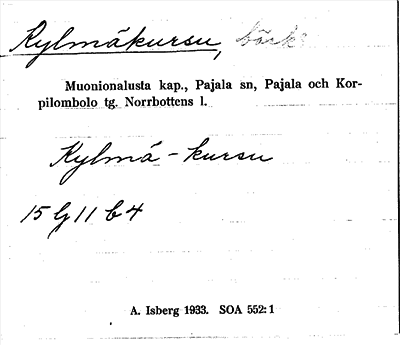 Kylmäkursu, bäck
Muonionalusta kap., Pajala sn, Pajala och Kor-
pilombolo tg. Norrbottens l.
Kylmä-kursu
15 g 11 b 4
A. Isberg 1933. SOA 552:1